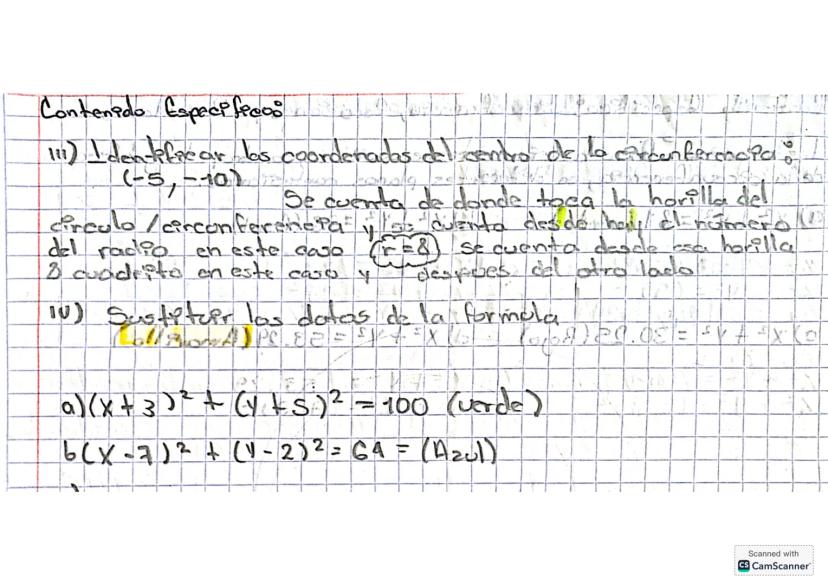 Contenido Especifico:
III) Identificar las coordenadas del centro de la circunferencia:
(-5, -10)
Se cuenta de donde toca la horilla del
circulo/circonferencia y se cuenta desde hay el número
del radio en este caso (r=8) se cuenta desde esa horilla
8 cuadrito en este caso y despues del otro lado
IV) Sustituir los datos de la formula
a)(x+3)² + (y+5)² = 100 (verde)
b(x-7)² + (y-2)² = 64 = (Azul)
Scanned with
CS CamScanner